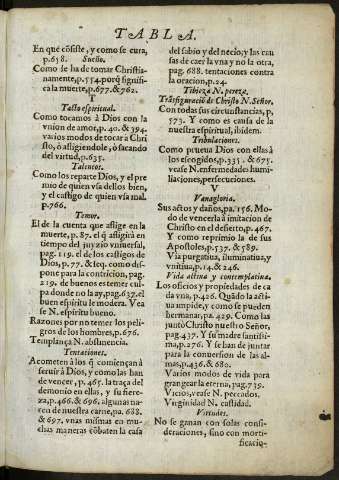 TABLA.
En què cõsiste, y como se cura,
p.658. Sueño.
Como se ha de tomar Christia-
namente, p.554. porq̃ signifi-
ca la muerte, p.677. & 762.
T
Tacto espiritual.
Como tocamos à Dios con la
vnion de amor, p.40. & 394.
varios modos de tocar à Chri
sto, ò afligiendole, ò sacando
del virtud, p.635.
Talentos.
Como los reparte Dios, y el pre
mio de quien vsa dellos bien,
y el castigo de quien vsa mal.
p.766.
Temor.
El de la cuenta que aflige en la
muerte, p.87. el q̃ afligirà en
tiempo del juyzio vniuersal,
pag. 119. el de los castigos de
Dios, p.77. & 109. como dis-
pone para la contricion, pag.
219. de buenos es temer cul-
pa donde no la ay, pag.637. el
buen espiritu le modera. Vea
se N. espiritu bueno.
Razones por no temer los peli-
gros de los hombres, p.676.
Templança N. abstinencia.
Tentaciones.
Acometen à los q̃ comiençan à
seruir à Dios, y como las han
de vencer, p.467. la traça del
demonio en ellas, y su fiere-
za, p.466. & 696. algunas na-
cen de nuestra carne, pa. 688.
& 697. vnas mismas en mu-
chas maneras cõbaten la casa
del sabio y del necio, y las cau
sas de caer la vna y no la otra,
pag. 688. tentaciones contra
la oracion, p.24.
Tibieza N. pereza.
Trãsfiguració de Christo N. Señor.
Con todas sus circunstancias, p.
573. Y como es causa de la
nuestra espiritual, ibidem.
Tribulaciones.
Como prueua Dios con ellas à
los escogidos, p.335. & 675.
vease N. enfermedades humi-
lliaciones, persecuciones.
V
Vanagloria.
Sus actos y daños, pa. 156. Mo-
do de vencerla à imitacion de
Christo en el desierto, p.467.
Y como reprimio la de sus
Apostoles, p.537. & 589.
Via purgatiua, iluminatiua, y
vnitiua, p.14. & 246.
Vida actiua y contemplatiua.
Los oficios y propiedades de ca
da vna, p.426. Quãdo la acti-
ua impide, y como se pueden
hermanar, pa. 429. Como las
juntò Christo nuestro Señor,
pag.437. Y su madre santissi-
ma, p.276. Y se han de juntar
para la conuersion de las al-
mas, p.436. & 680.
Varios modos de vida para
grangear la eterna, pag.739.
Vicios, vease N. peccados.
Virginidad N. castidad.
Virtudes.
No se ganan con solas consi-
deraciones, sino con morti-
ficacio-